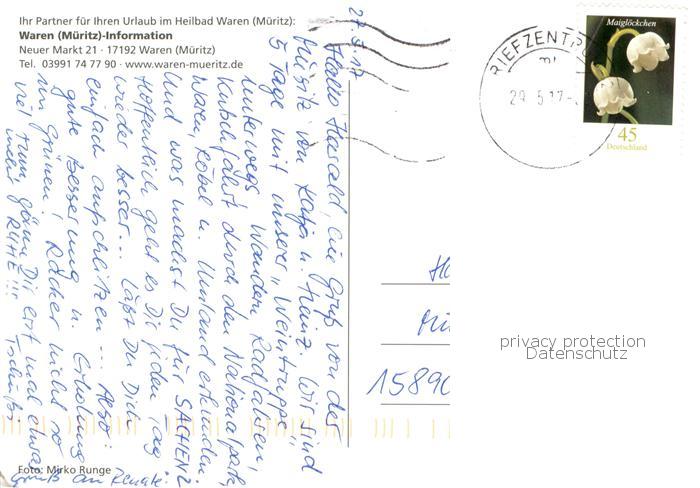 Ihr Partner für Ihren Urlaub im Heilbad Waren (Müritz):
Waren (Müritz)-Information
Neuer Markt 21 · 17192 Waren (Müritz)
Tel. 03991 74 77 90 · www.waren-mueritz.de
27.5.17
Hallo ein Gruß von der
Müritz von Katja u. Heinz. Wir sind
5 Tage mit unserer „Weintruppe"
unterwegs. Wandern, Radfahren,
Kutschfahrt durch den Nationalpark,
Waren, Röbel u. Umland erkunden.
Und was machst Du für SACHEN?
Hoffentlich geht es Dir jeden Tag
wieder besser... Läßt Du Dich
einfach aufschlitzen... Also:
gute Besserung u. Erholung
im Grünen! nicht so
viel rum, gönn Dir erst mal etwas
mehr RUHE!!! Tschüß
Gruß an Renate.
Foto: Mirko Runge
BRIEFZENTRUM
29.5.17
Maiglöckchen
45
Deutschland
15890
privacy protection
Datenschutz